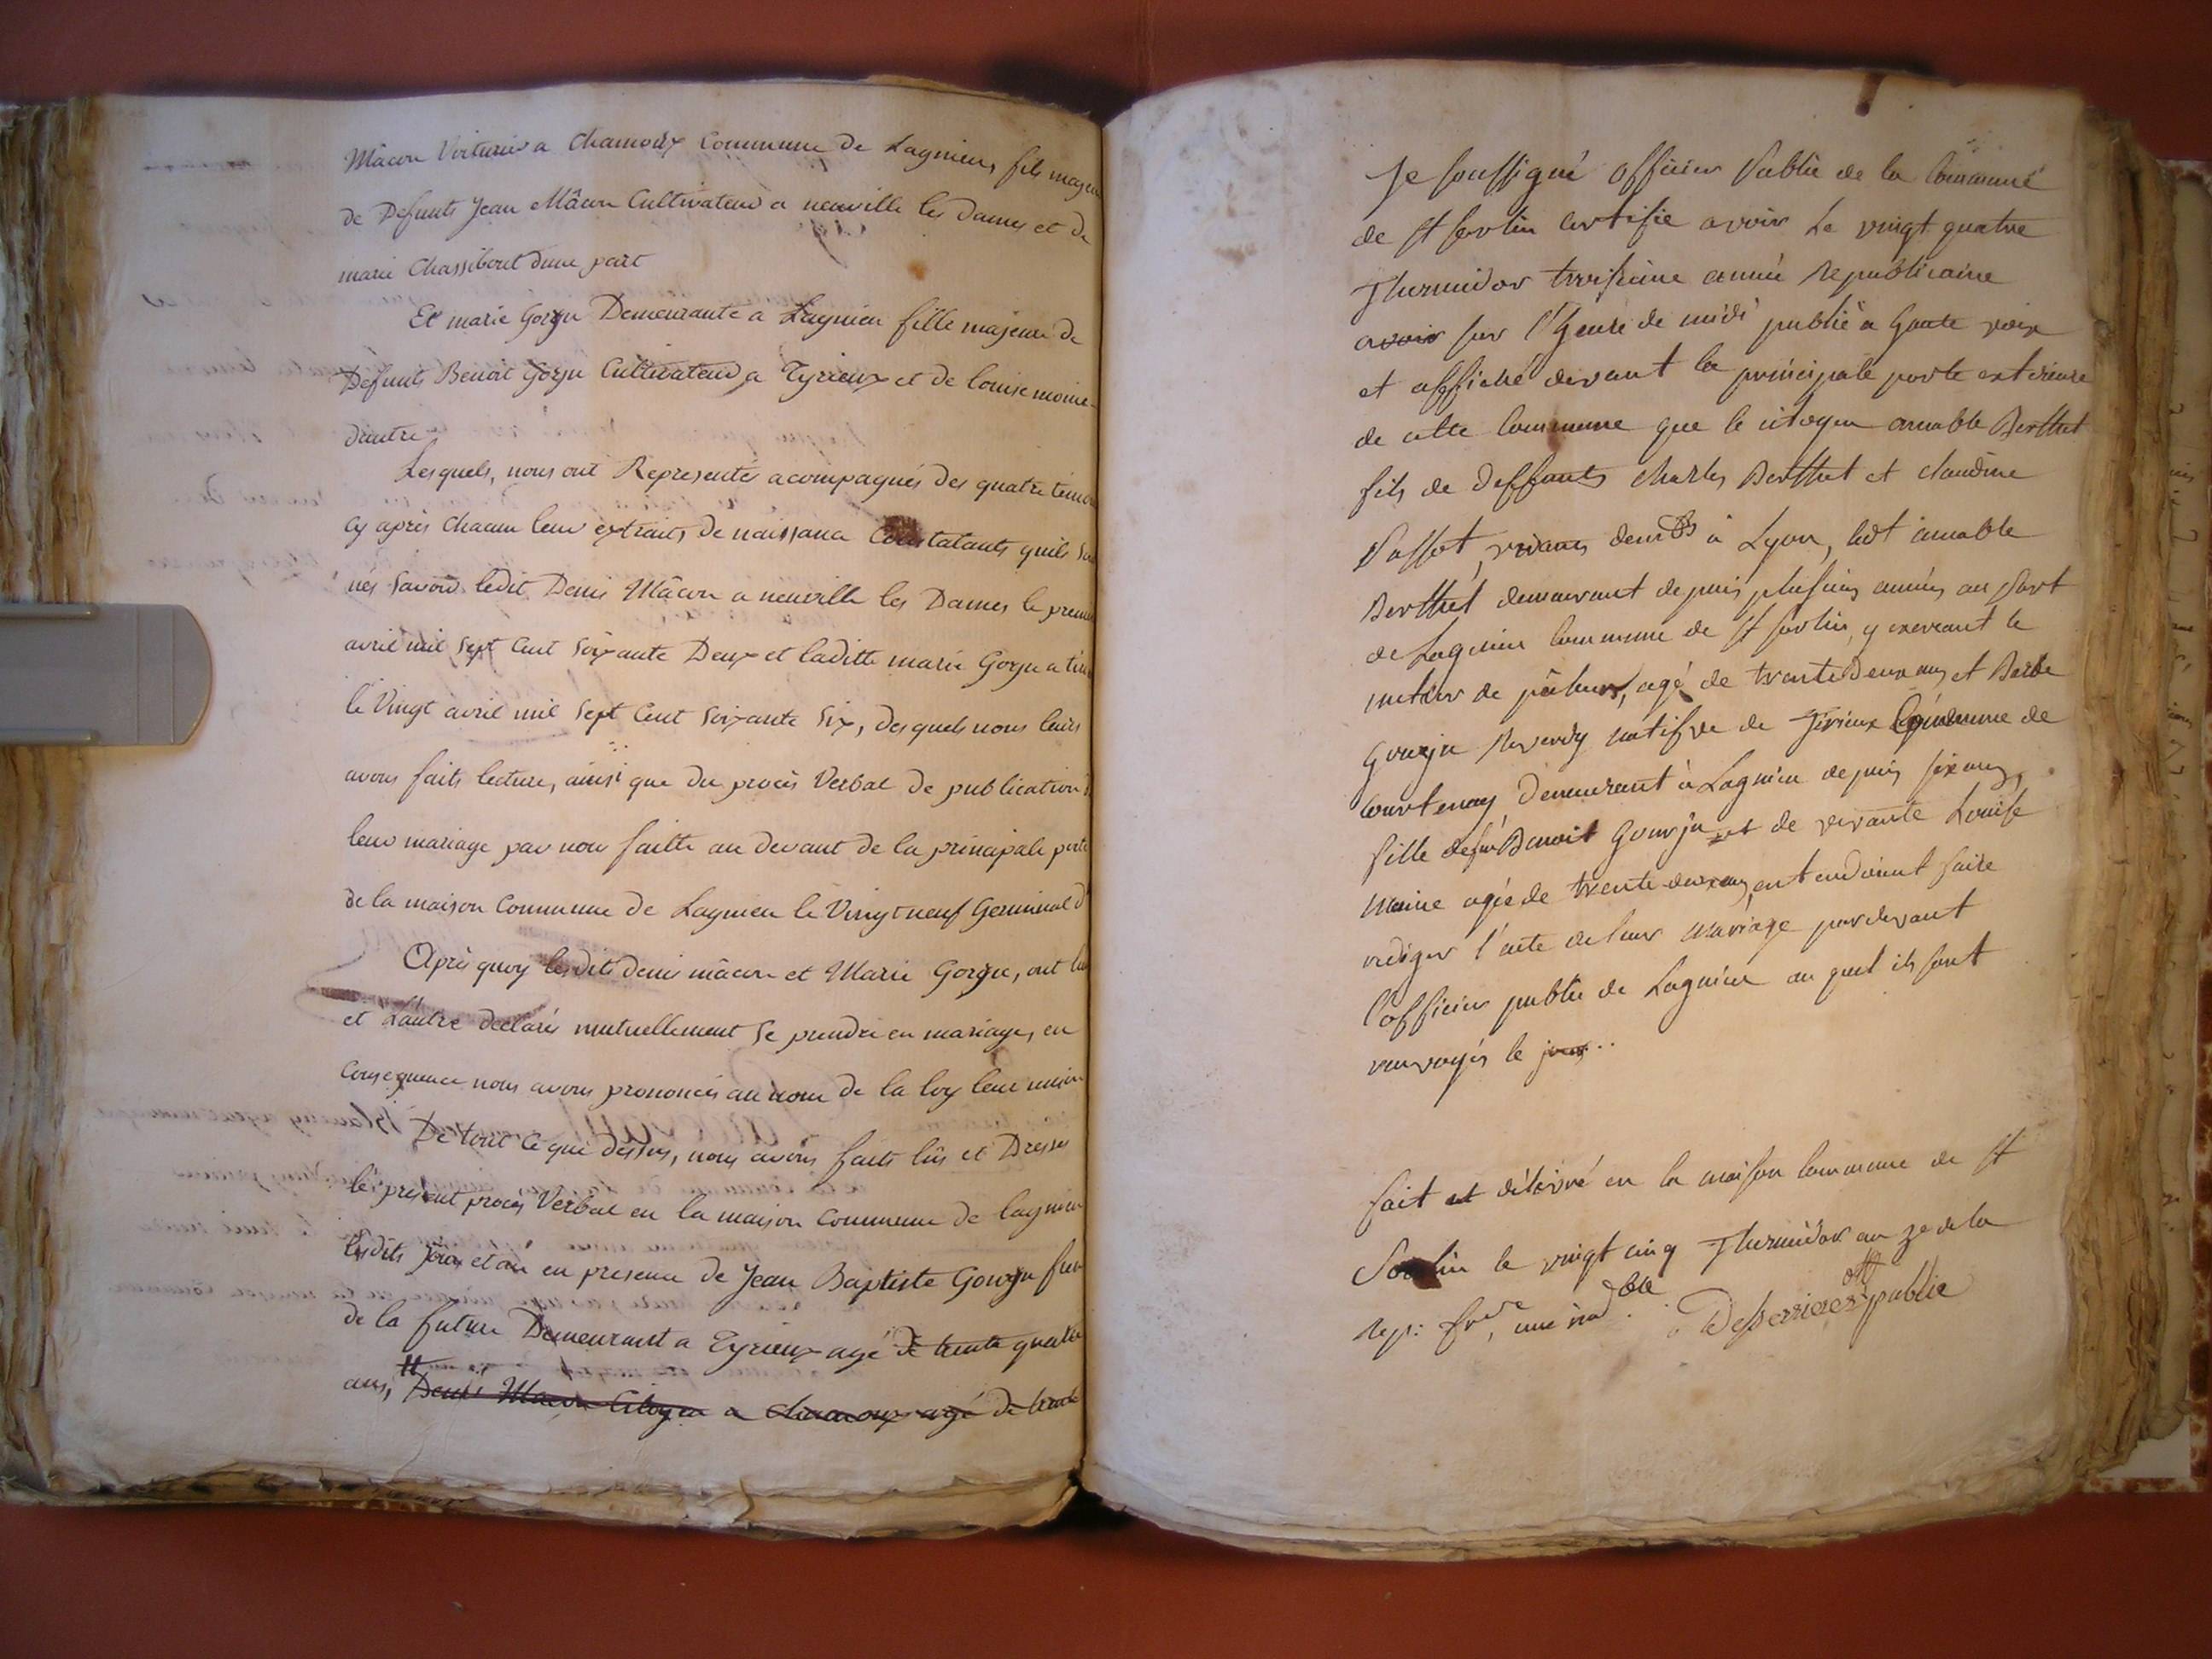 Mâcon Voiturier a Chamoux Commune de Lagnieu, fils majeur
de Defunts Jean Mâcon Cultivateur a neuville les dames et de
marie Chassibout dune part
Et marie Gorju Demeurante a Lagnieu fille majeure de
Defunts Benoit Gorju Cultivateur a Tyrieux et de louise moine
dautre
Lesquels, nous ont Representés acompagnés des quatre temoins
cy après chacun leur extraits de naissance Constatants quils sont
nés savoir ledit Denis Mâcon a neuville les Dames le premier
avril mil sept Cent soixante Deux et laditte marie Gorju a
le Vingt avril mil sept Cent soixante six, desquels nous leurs
avons faits lecture, ainsi que du procès Verbal de publication
leur mariage par nous faitte au devant de la principale porte
de la maison Commune de Lagnieu le Vingt neuf Germinal
Après quoy lesdits denis mâcon et Marie Gorju, ont lun
et Lautre declarés mutuellement se prendre en mariage, en
Consequence nous avons prononcés au nom de la loy leur union
De tout ce que dessus, nous avons faits lûs et Dressés
le present procès Verbal en la maison Commune de lagnieu
lesdits jour et an en presence de Jean Baptiste Gorju frere
de la future Demeurant a Tyrieux agé de trente quatre
ans, Denis Macon Citoyen a Chamoux agé de trente
Je soussigné officier Public de la Commune
de St sorlin certifie avoir Le vingt quatre
Thermidor troisieme année Republicaine
avoir sur l'heure de midi publié a haute voix
et affiché devant la principale porte exterieure
de cette Commune que le citoyen amable Berthet
fils de deffunts charles Berthet et claudine
Passot, vivants demts à Lyon, ledt amable
Berthet demeurant depuis plusieurs années au port
de Lagnieu commune de St sorlin, y exercant le
metier de pêcheur, agé de trente deux ans, et
Gourju Reverdy natifve de Tirieux Commune de
Courtenay demeurant à Lagnieu depuis six ans,
fille defeu Benoit Gourju et de vivante Louise
Moine agée de trente deux ans, entendoient faire
rediger l'acte de leur mariage pardevant
l'officier public de Lagnieu au quel ils sont
renvoyés le jour..
fait et délivré en la maison commune de St
Sorlin le vingt cinq Thermidor an 3e de la
Rep: fre, une ind.ble Desserieres off public